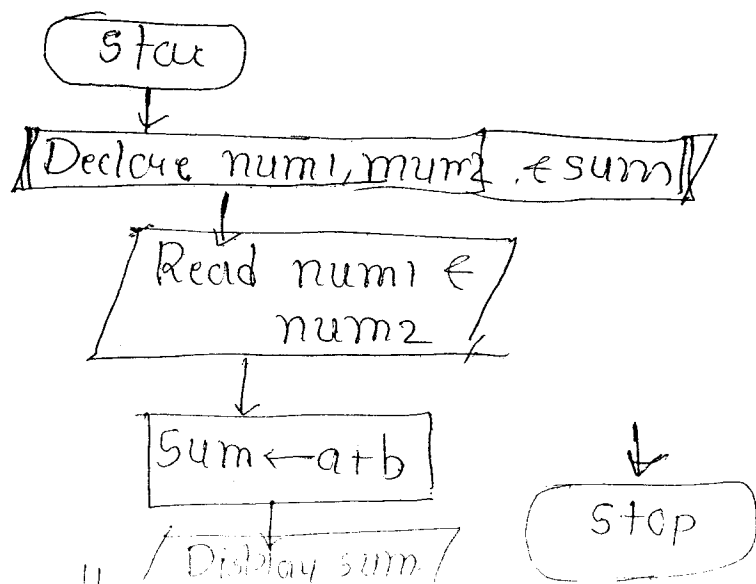 Star
Declare num1, mum2 , & sum
Read num1 &
num2
Sum ← a+b
Display sum
Stop